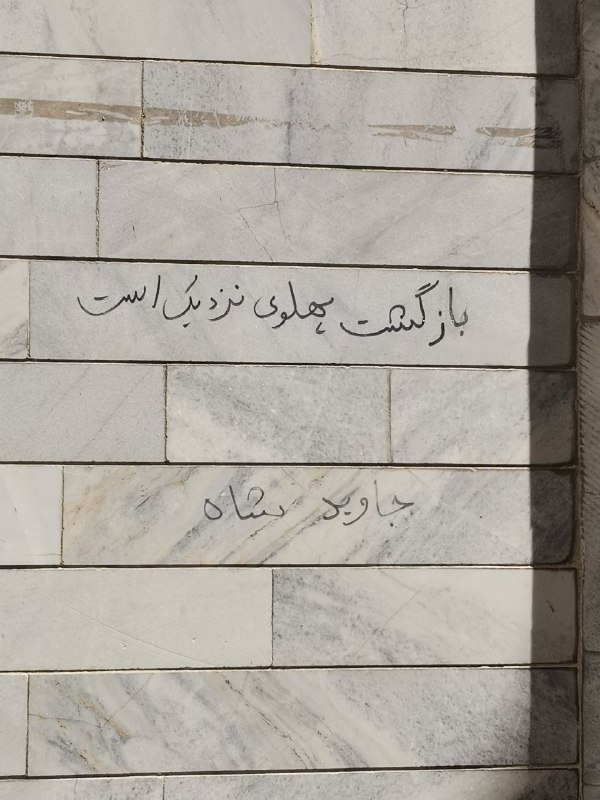 بازگشت پهلوی نزدیک است
جاوید شاه